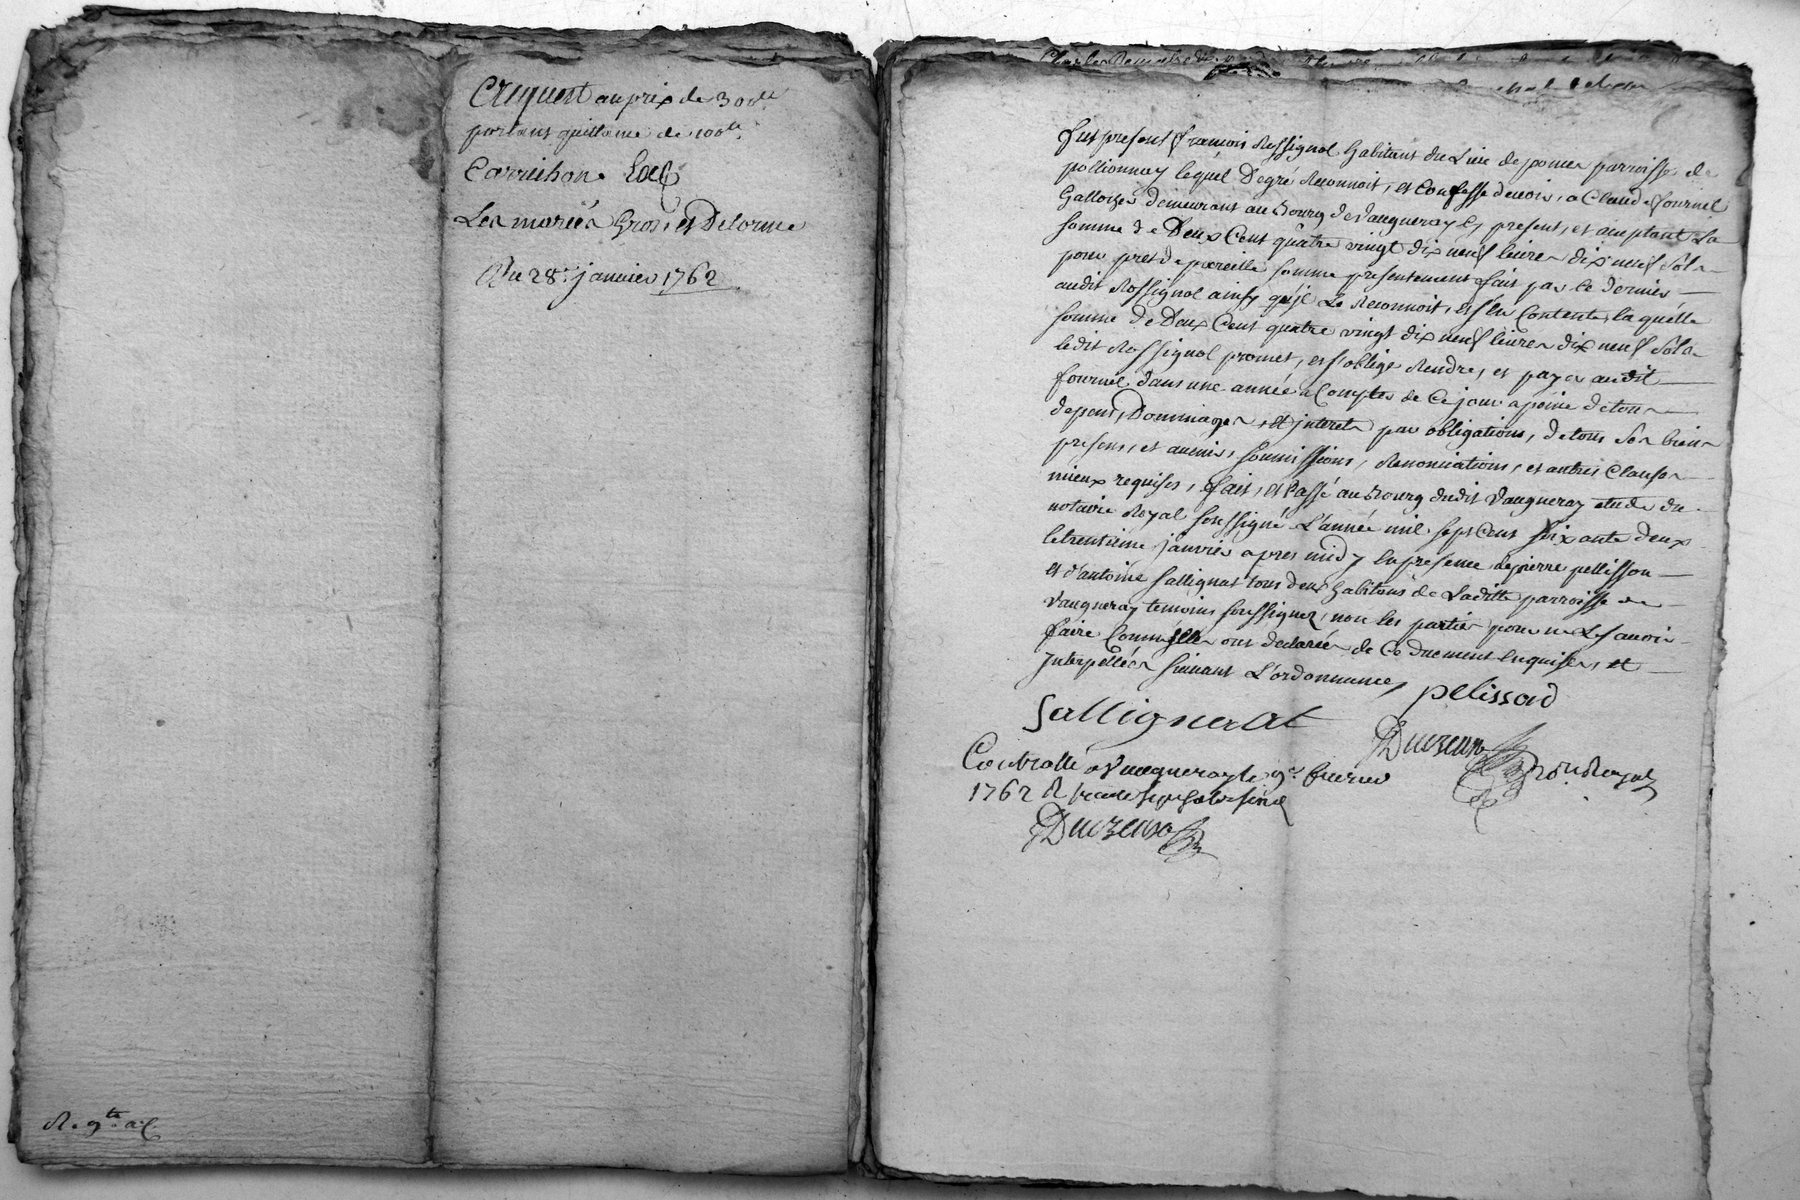 Acquest au prix de 300 ll
portant quittance de 100 ll
Carrichon
Les mariés Gros, et Delorme
Du 28e janvier 1762
R. 9 ll
fut present francois Rossignol habitant du Lieu de parroisse de
pollionnay lequel de gré Reconnoit, et Confesse devoir, a Claude fournel
demeurant au Bourg de Vaugneray, present, et acceptant La
somme de Deux Cent quatre vingt dix neuf livres dix neuf sols
pour pret de pareille somme presentement fait par ce dernier
audit Rossignol ainsy qu'jl Le Reconnoit, et s'en Contente, la quelle
somme de Deux Cent quatre vingt dix neuf livres dix neuf sols
ledit Rossignol promet, et s'oblige Rendre, et payer audit
fournel dans une année a Compter de Ce jour a peine de tous
depens, Dommages, et jnterets par obligations, de tous ses biens
presens, et avenir, soumissions, Renonciations, et autres Clauses
mieux requises, fait, et Passé au Bourg dudit Vaugneray etude du
notaire Royal soussigné L'année mil sept Cent soixante deux
le trentieme janvier apres midy en presence de pierre pellisson
et d'antoine sallignat tous deux habitans de Laditte parroisse de
Vaugneray temoins soussignez, non les parties pour ne Le savoir
faire Comme elles ont declarées de Ce duement enquises, et
Interpellées suivant L'ordonnance,
pelisson
Sallignat
Controllé a Vaugneray le 9e fevrier
1762 R